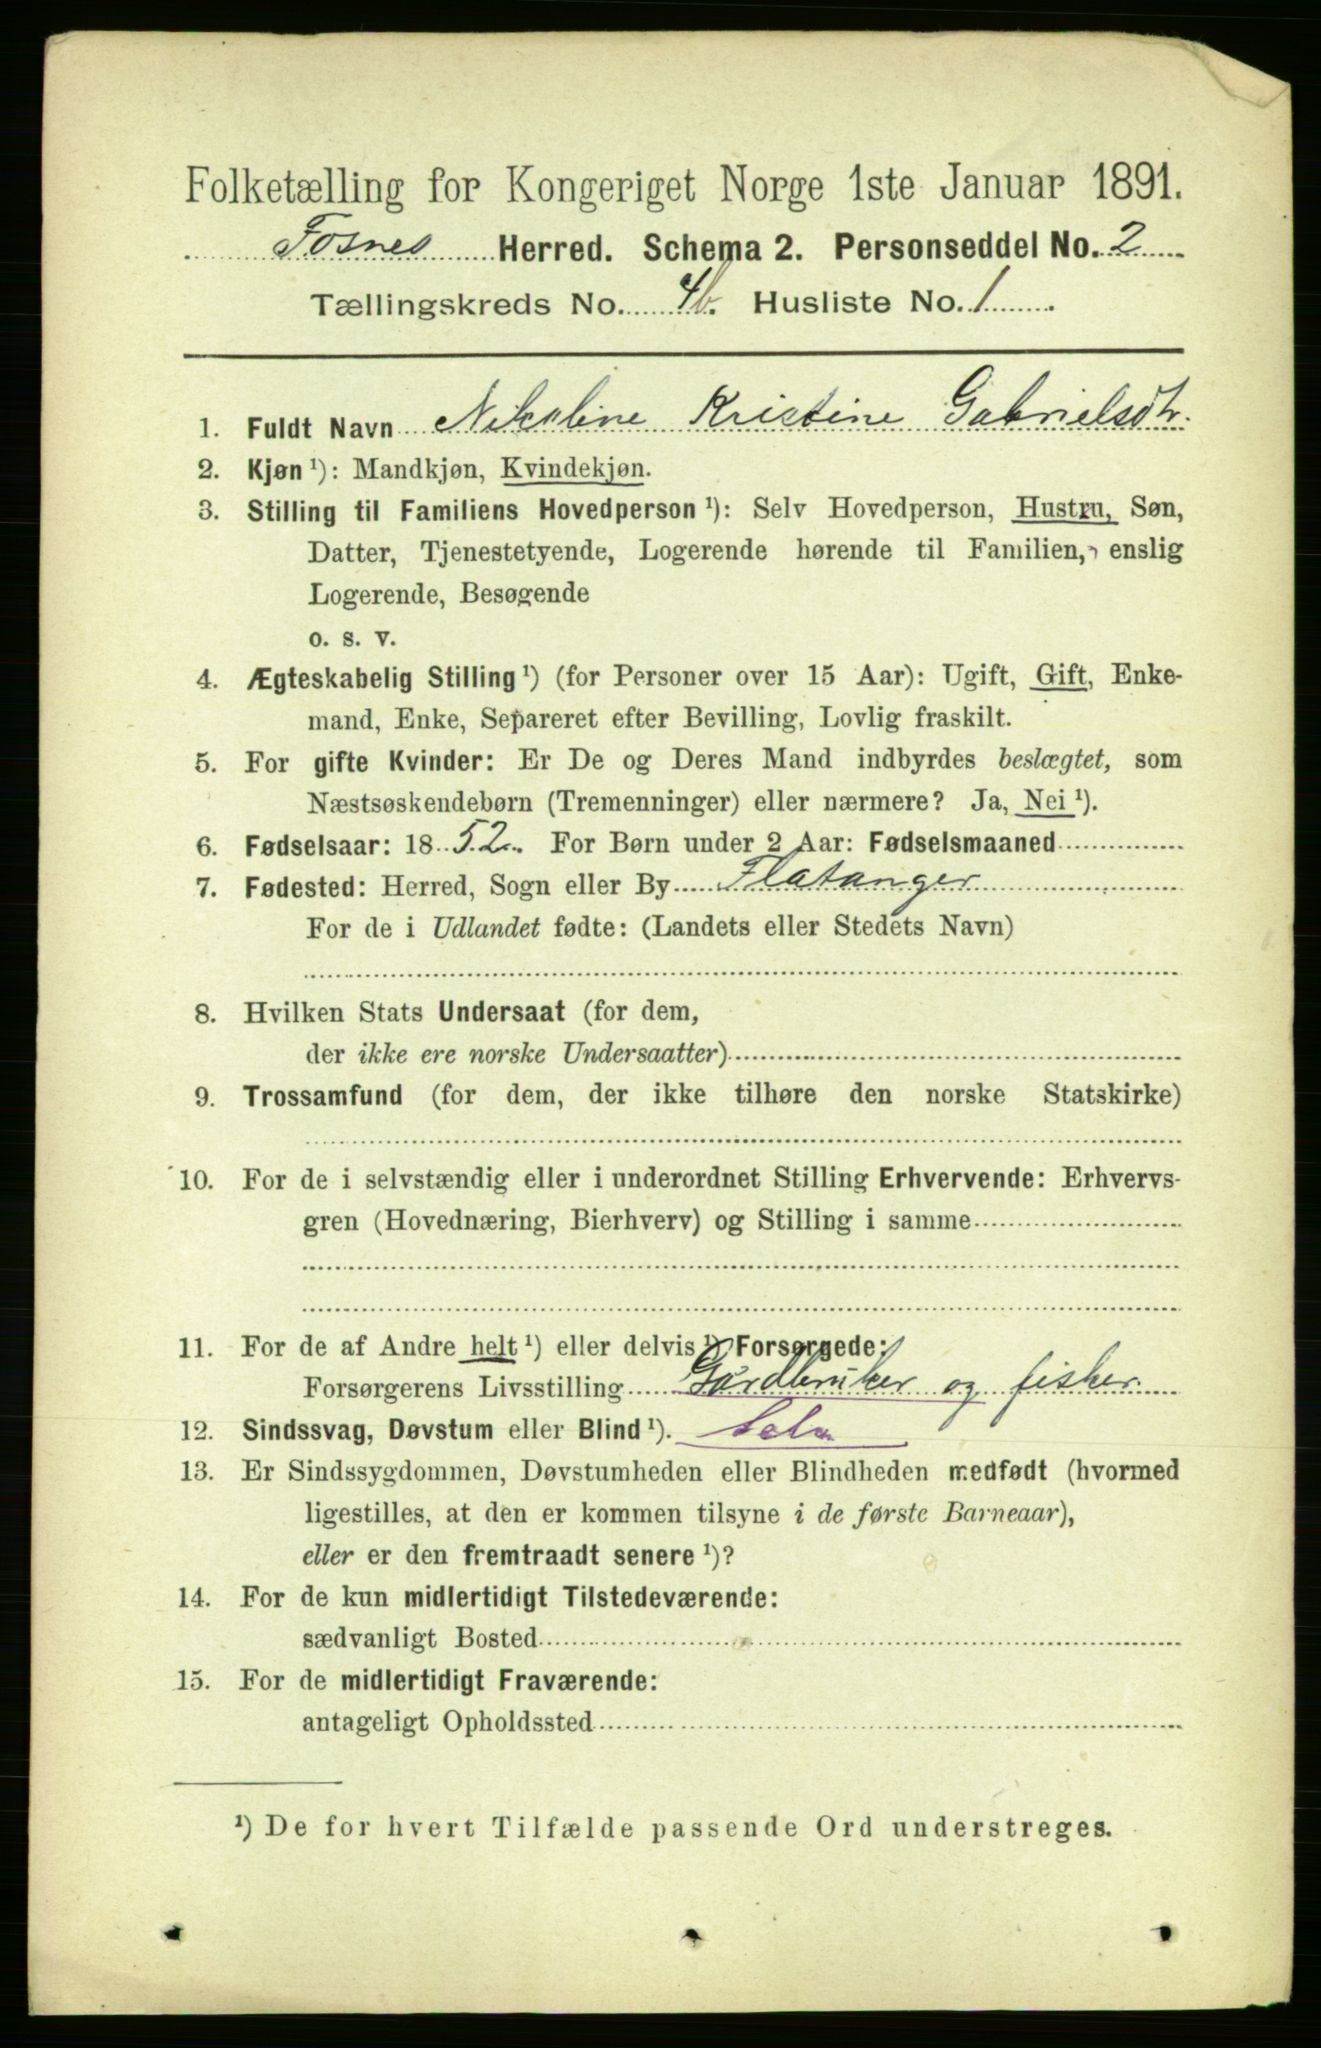 Folketælling for Kongeriget Norge 1ste Januar 1891.
Fosnes Herred. Schema 2. Personseddel No. 2
Tællingskreds No. 4b. Husliste No. 1
1. Fuldt Navn Nikoline Kristine Gabrielsdtr.
2. Kjøn ¹): Mandkjøn, Kvindekjøn.
3. Stilling til Familiens Hovedperson ¹): Selv Hovedperson, Hustru, Søn,
Datter, Tjenestetyende, Logerende hørende til Familien, enslig
Logerende, Besøgende
o. s. v.
4. Ægteskabelig Stilling ¹) (for Personer over 15 Aar): Ugift, Gift, Enke-
mand, Enke, Separeret efter Bevilling, Lovlig fraskilt.
5. For gifte Kvinder: Er De og Deres Mand indbyrdes beslægtet, som
Næstsøskendebørn (Tremenninger) eller nærmere? Ja, Nei ¹).
6. Fødselsaar: 1852. For Børn under 2 Aar: Fødselsmaaned
7. Fødested: Herred, Sogn eller By Flatanger
For de i Udlandet fødte: (Landets eller Stedets Navn)
8. Hvilken Stats Undersaat (for dem,
der ikke ere norske Undersaatter)
9. Trossamfund (for dem, der ikke tilhøre den norske Statskirke)
10. For de i selvstændig eller i underordnet Stilling Erhvervende: Erhvervs-
gren (Hovednæring, Bierhverv) og Stilling i samme
11. For de af Andre helt ¹) eller delvis ¹) Forsørgede:
Forsørgerens Livsstilling Gårdbruker og fisker
12. Sindssvag, Døvstum eller Blind ¹).
13. Er Sindssygdommen, Døvstumheden eller Blindheden medfødt (hvormed
ligestilles, at den er kommen tilsyne i de første Barneaar),
eller er den fremtraadt senere ¹)?
14. For de kun midlertidigt Tilstedeværende:
sædvanligt Bosted
15. For de midlertidigt Fraværende:
antageligt Opholdssted
¹) De for hvert Tilfælde passende Ord understreges.